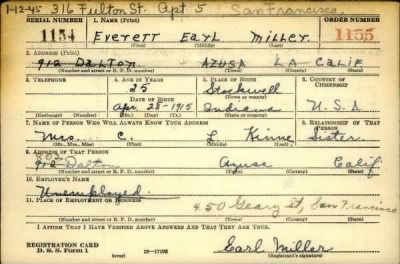 1-12-45 316 Fulton St. Apt 5 San Francisco
SERIAL NUMBER 1. NAME (Print) ORDER NUMBER
1154 Everett Earl Miller 1155
(First) (Middle) (Last)
2. ADDRESS (Print)
912 Dalton AZUSA LA CALIF
(Number and street or R. F. D. number) (Town) (County) (State)
3. TELEPHONE 4. AGE IN YEARS 5. PLACE OF BIRTH 6. COUNTRY OF CITIZENSHIP
25 Stockwell
DATE OF BIRTH (Town or county)
Apr 28-1915 Indiana U.S.A
(Mo.) (Day) (Yr.) (State or country)
7. NAME OF PERSON WHO WILL ALWAYS KNOW YOUR ADDRESS 8. RELATIONSHIP OF THAT PERSON
Mrs. C. L. Kinne Sister
(Mr., Mrs., Miss) (First) (Middle) (Last)
9. ADDRESS OF THAT PERSON
802
912 Dalton Azusa Calif
(Number and street or R. F. D. number) (Town) (County) (State)
10. EMPLOYER'S NAME
Unemployed.
11. PLACE OF EMPLOYMENT OR BUSINESS
450 Geary St, San Francisco
(Number and street or R. F. D. number) (Town) (County) (State)
I AFFIRM THAT I HAVE VERIFIED ABOVE ANSWERS AND THAT THEY ARE TRUE.
REGISTRATION CARD
D. S. S. Form 1 16-17105 Earl Miller
(Registrant's signature)